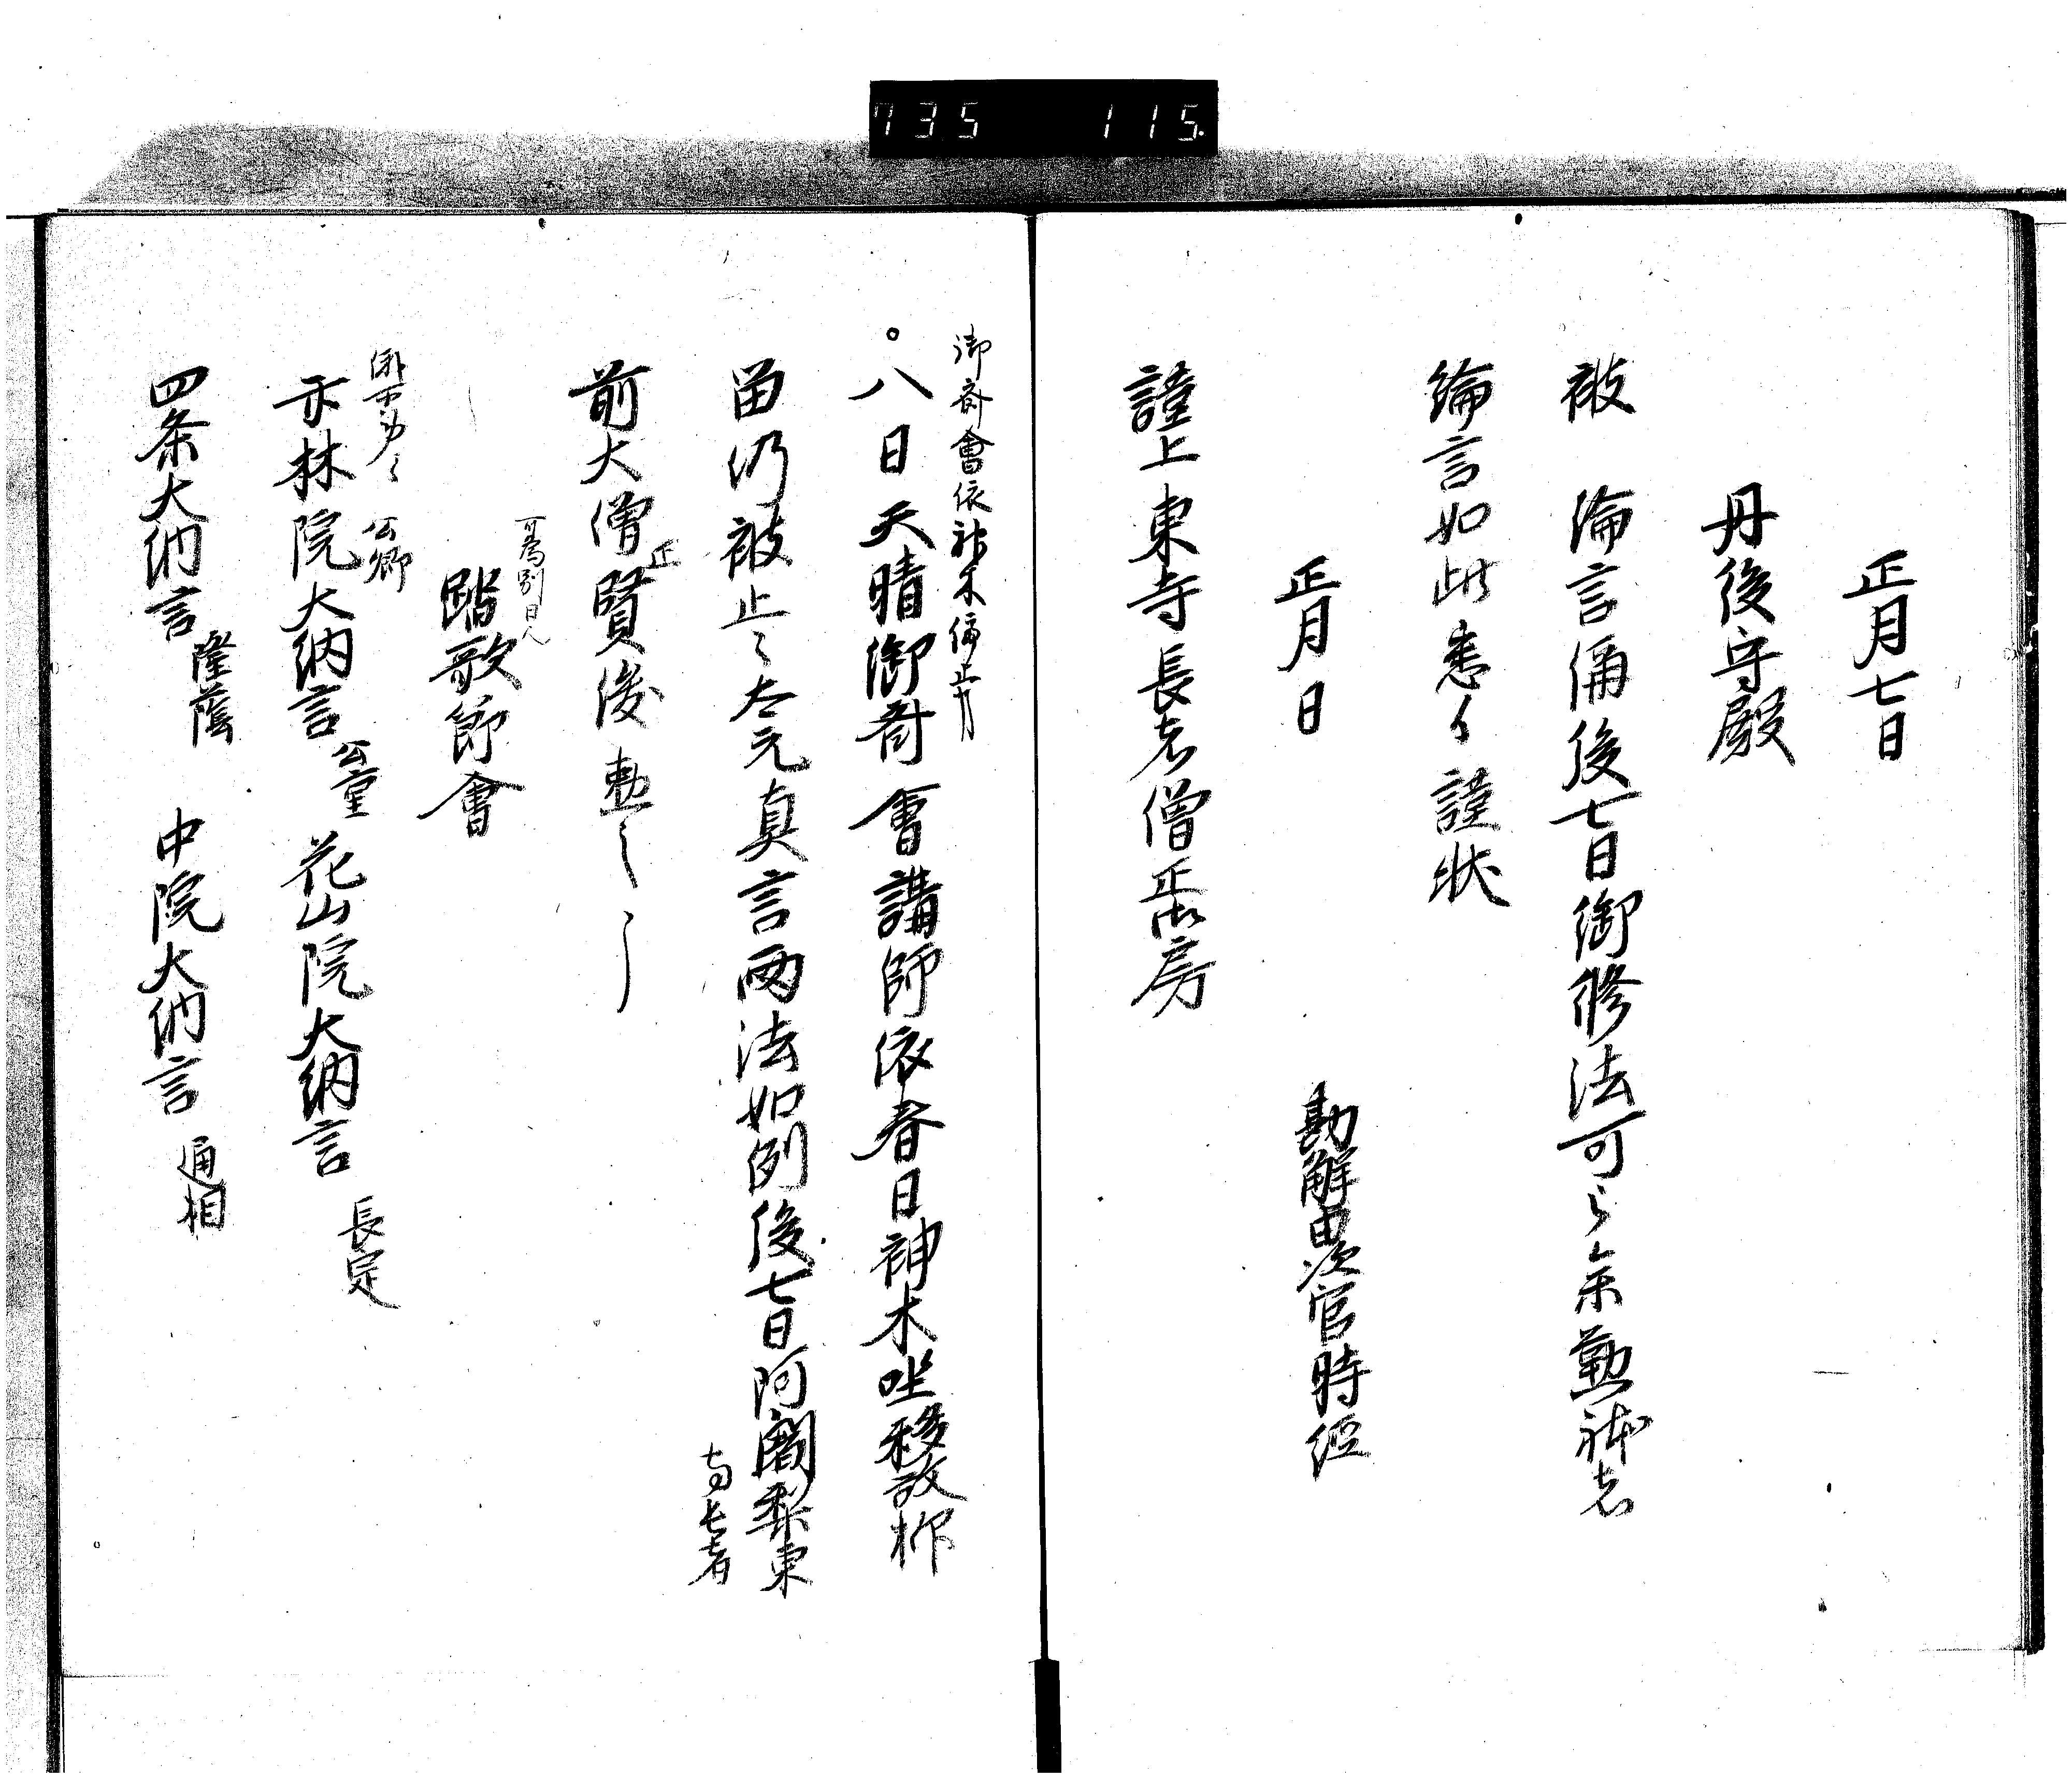 735 115
正月七日
丹後守殿
被 綸言偁後七日御修法可令
綸言如此悉之謹状
正月日
勘解由次官時経
謹上東寺長者僧正御房
御斎會依神木停止
八日天晴御斎會講師依春日神木坐移殿
留仍被止之太元真言両法如例後七日阿闍梨東
寺長者
前大僧正賢俊勤之
可為別日
踏歌節會
公卿
林院大納言 公重 花山院大納言 長定
四条大納言 隆蔭 中院大納言 通相